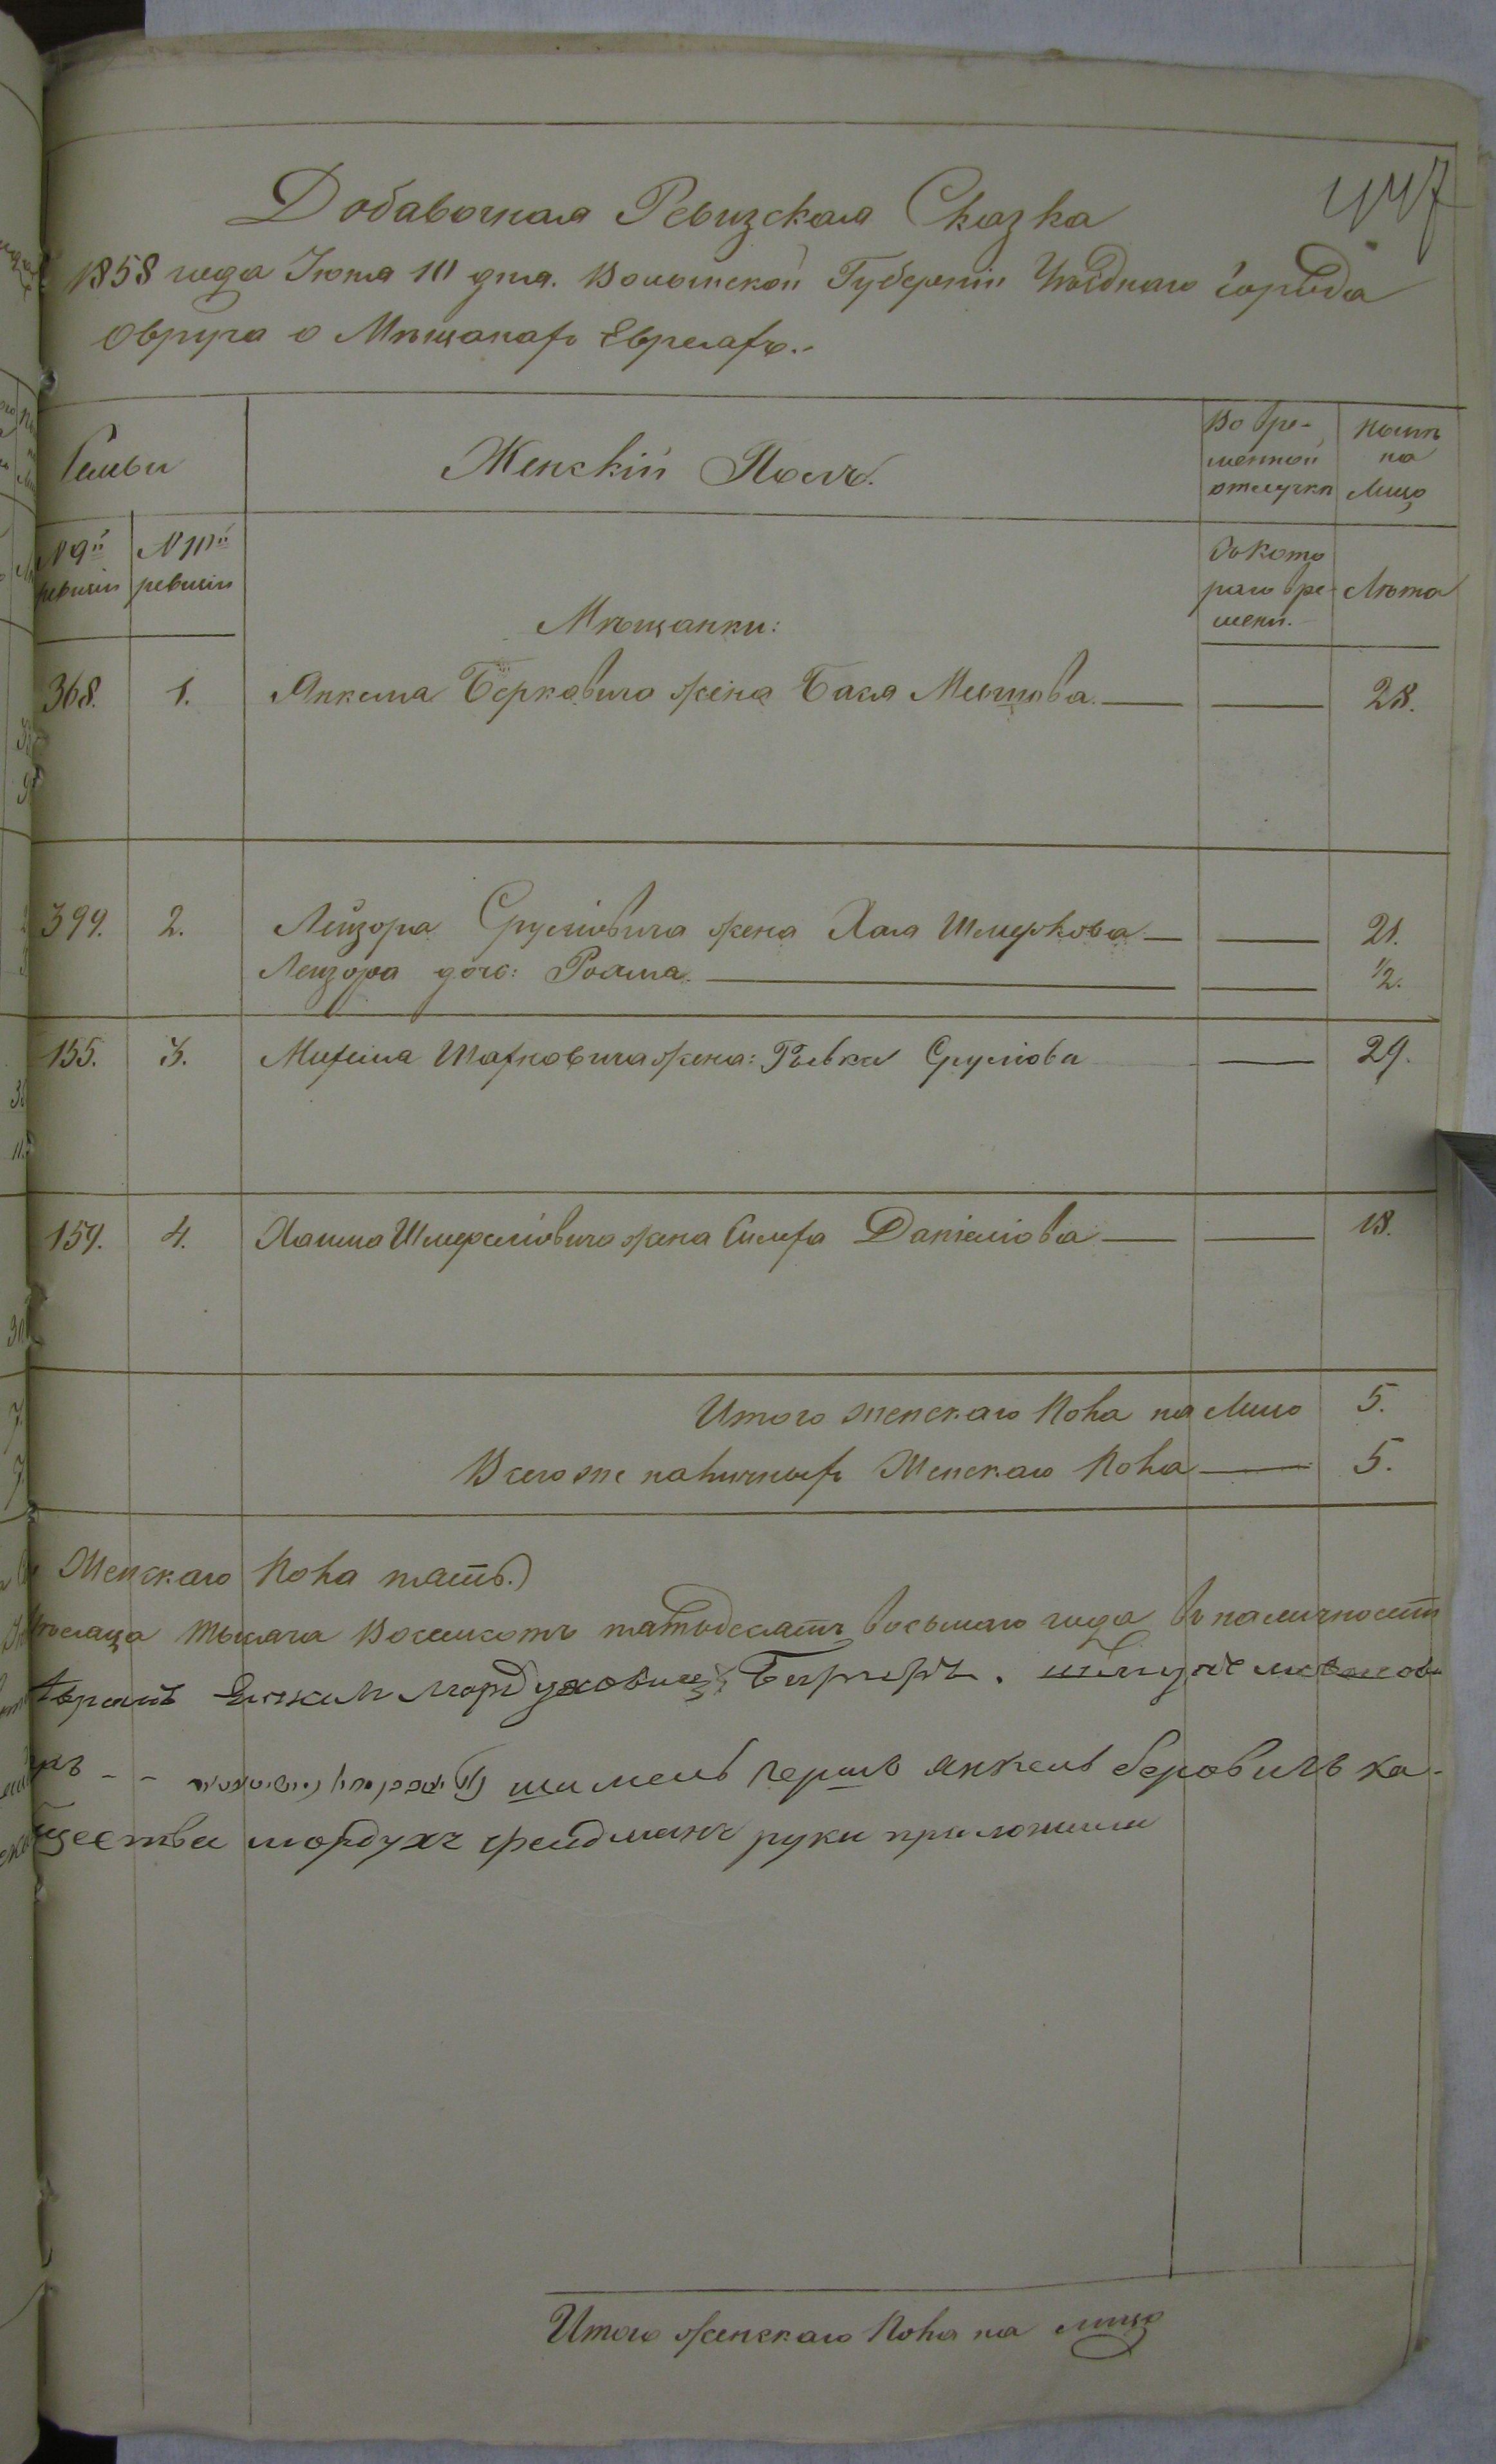 447
Добавочная Ревизская Сказка
1858 года Июня 10 дня. Волынской Губерніи Уѣзднаго города
Овруча о Мѣщанахъ Евреяхъ..
Семьи
Женскій Полъ.
Во вре-
менной
отлучкѣ
Нынѣ
на
Лицо
№ 9й
ревизіи
№ 10й
ревизіи
Съ кото
раго вре-
мени.
Лѣта
Мѣщанки:
368. 1. Янкеля Берковича жена Бася 28.
399. 2. Лейзора Срулiовича жена Хая Шмеркова 21.
Лейзора дочь: 1/2.
155. 3. Михеля жена: Рывка Срулiова 29.
159. 4. Хаима жена Симха Данiелiова 18.
Итого женскаго пола на Лицо 5.
Всего же наличныхъ Женскаго пола 5.
Женскаго пола пять.)
мѣсяца тысяча восемсотъ пятьдесятъ восьмаго года въ наличности
Мордуховичъ
Гершъ Янкель Беровичъ ка-
щества Мордухъ Фридманъ руки приложили
Итого женскаго пола на лицо